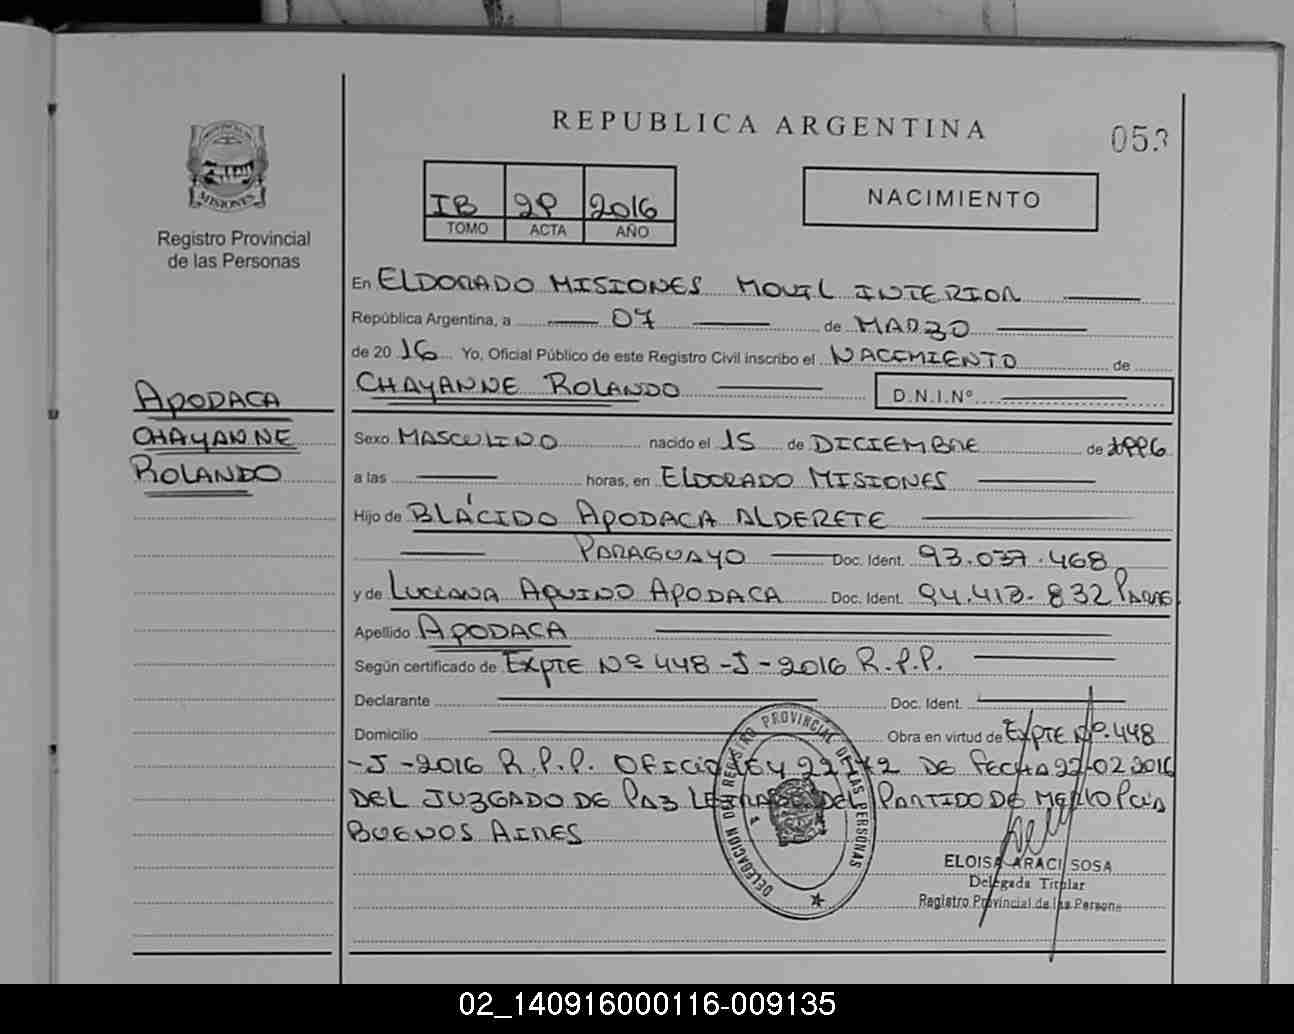 REPUBLICA ARGENTINA
053
MISIONES
Registro Provincial
de las Personas
IB 29 2016
TOMO ACTA AÑO
NACIMIENTO
En ELDORADO MISIONES MOVIL INTERIOR
República Argentina, a 07 de MARZO
de 2016 Yo, Oficial Público de este Registro Civil inscribo el NACIMIENTO de
CHAYANNE ROLANDO D.N.I.Nº
APODACA
CHAYANNE
ROLANDO
Sexo MASCULINO nacido el 15 de DICIEMBRE de 1996
a las horas, en ELDORADO MISIONES
Hijo de BLÁCIDO APODACA ALDERETE
PARAGUAYO Doc. Ident. 93.037.468
y de LUCIANA AQUINO APODACA Doc. Ident. 94.413.832
Apellido APODACA
Según certificado de EXPTE Nº 448-J-2016 R.P.P.
Declarante Doc. Ident.
Domicilio Obra en virtud de EXPTE Nº.448
-J-2016 R.P.P. OFICIO LEY 22172 DE FECHA 22-02 2016
DEL JUZGADO DE PAZ LETRADO DEL PARTIDO DE MERLO PCIA
BUENOS AIRES
DELEGACION DEL REGISTRO PROVINCIAL DE LAS PERSONAS
ELOISA ARACI SOSA
Delegada Titular
Registro Provincial de las Persona
02_140916000116-009135